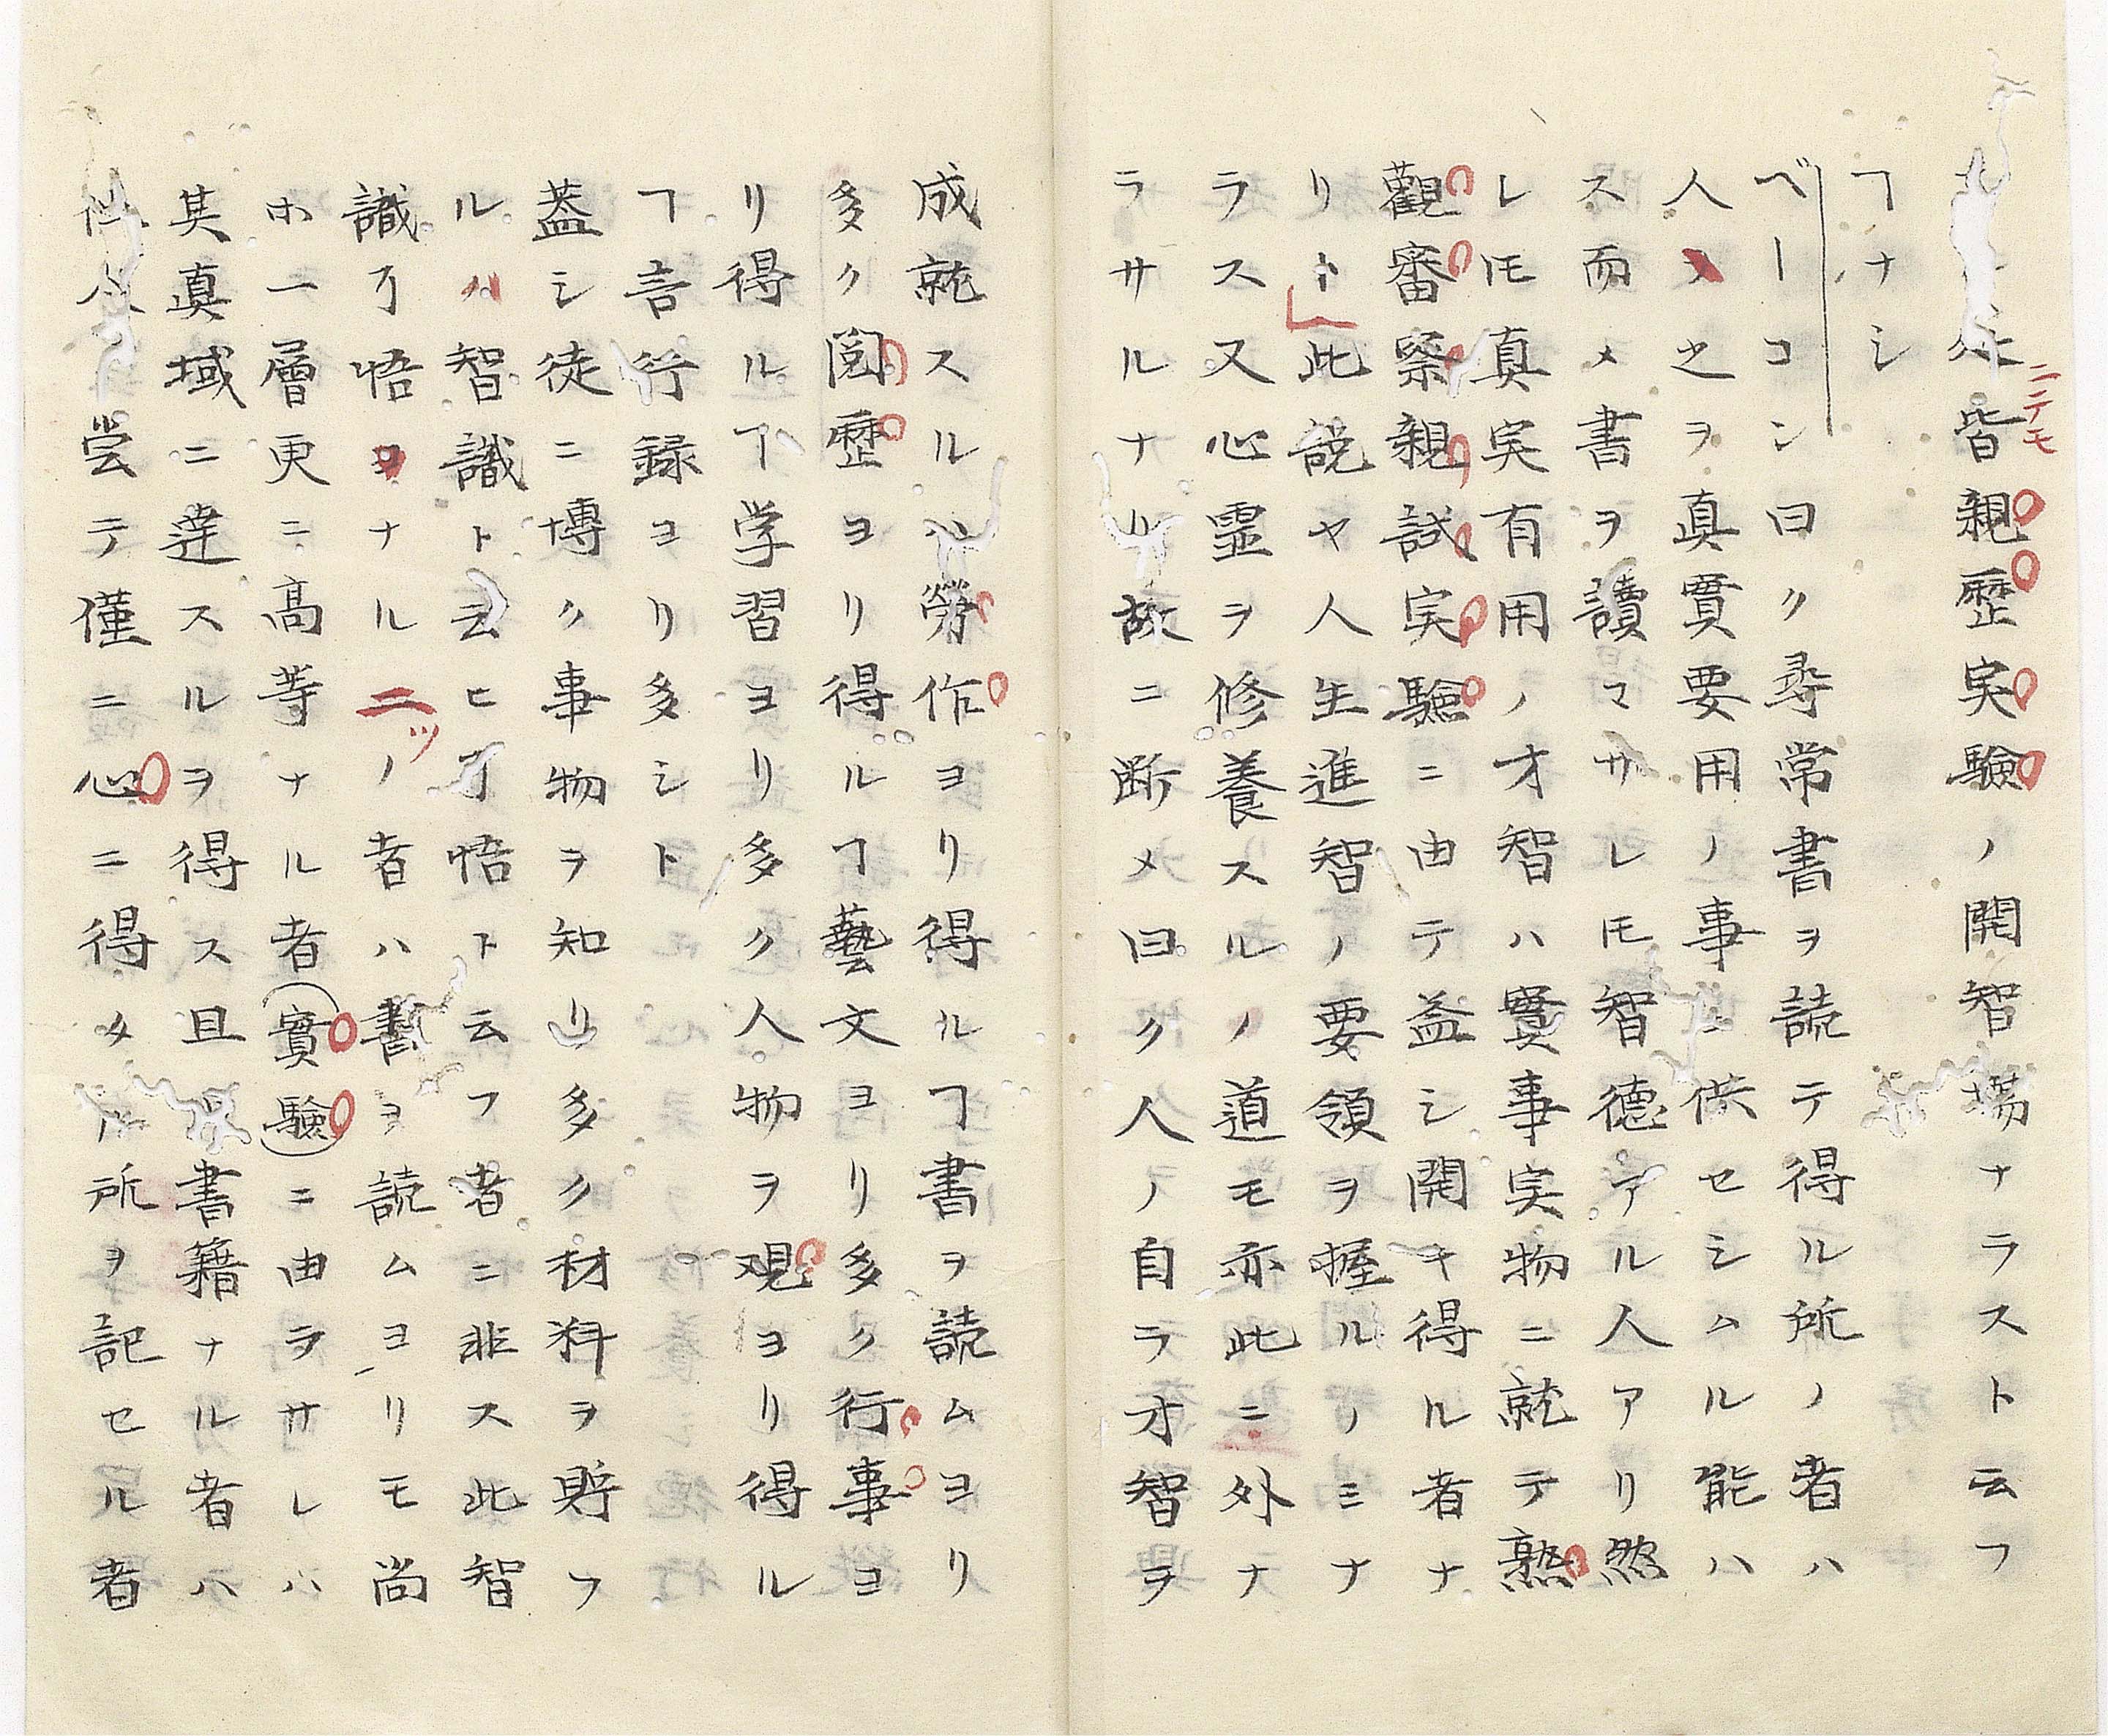 皆親歴実驗ノ開智場ナラスト云フ
ニテモ
ヿナシ
ベーコン曰ク尋常書ヲ読テ得ル所ノ者ハ
人メ之ヲ真貫要用ノ事ニ供セシムル能ハ
ス而メ書ヲ讀マサレモ智德アル人アリ然
レ𪜈真実有用ノ才智ハ實事実物ニ就テ熟
觀審察親試実驗ニ由テ益シ開キ得ル者ナ
リト此説ヤ人生進智ノ要領ヲ握ルノミナ
ラス又心霊ヲ修養スルノ道モ亦此ニ外ナ
ラサルナリ故ニ断メ曰ク人ノ自ラ才智ヲ
成就スルハ勞作ヨリ得ルヿ書ヲ読ムヨリ
多ク閲歴ヨリ得ルヿ藝文ヨリ多ク行事ヨ
リ得ルヿ学習ヨリ多ク人物ヲ观ヨリ得ル
ヿ言行録ヨリ多シト
蓋シ徒ニ博ク事物ヲ知リ多ク材料ヲ貯フ
ルハ智識ト云ヒ了悟ト云フ者ニ非ス此智
識了悟ヨナルニノ者ハ書ヲ読ムヨリモ尚
ッ
ホ一層更ニ高等ナル者實驗ニ由ラサレハ
其真域ニ達スルヲ得ス且書籍ナル者ハ
人嘗テ僅ニ心ニ得タル所ヲ記セル者